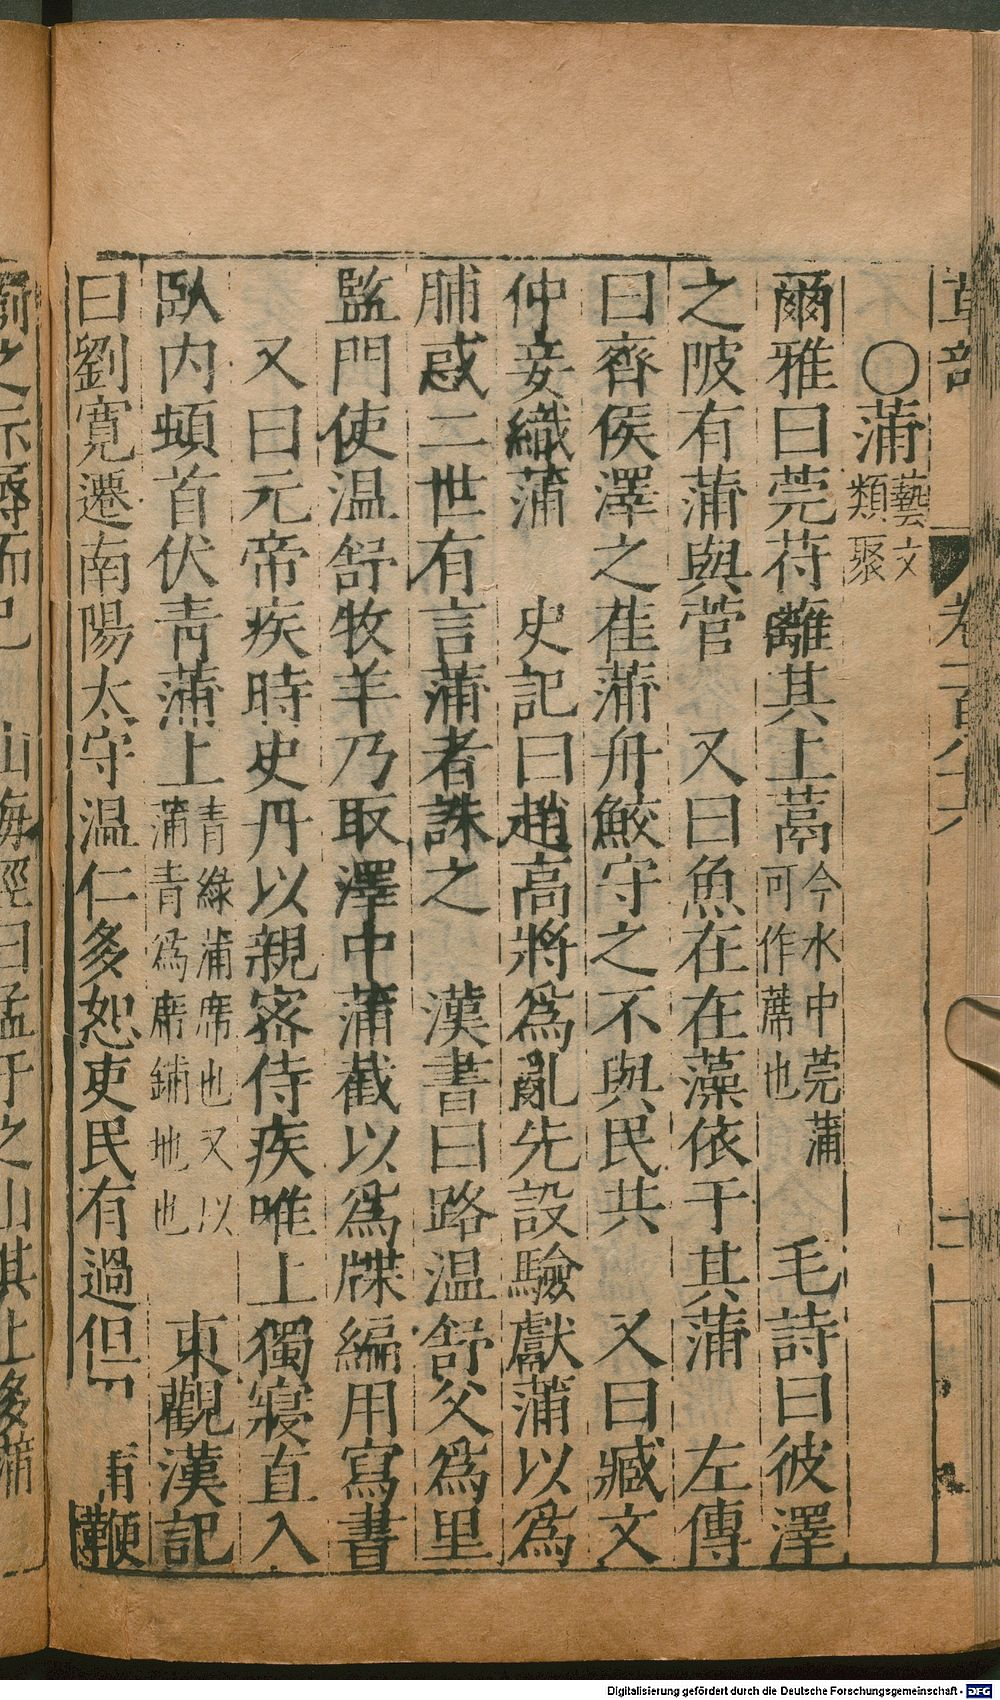 ○蒲藝文類聚
爾雅曰莞苻蘺其上蒚今水中莞蒲可作蓆也　毛詩曰彼澤
之陂有蒲與菅　又曰魚在在藻依于其蒲　左傳
曰齊侯澤之萑蒲舟鮫守之不與民共　又曰臧文
仲妾織蒲　史記曰趙高將爲亂先設驗獻蒲以爲
脯惑二世有言蒲者誅之　漢書曰路温舒父爲里
監門使温舒牧羊乃取澤中蒲截以爲牒編用寫書
又曰元帝疾時史丹以親密侍疾唯上獨寢直入
臥内頓首伏青蒲上青綠蒲席也又以蒲青爲席鋪地也　東觀漢記
曰劉寛遷南陽太守温仁多恕吏民有過但蒲鞭
之示辱而已　山海經曰孟于之山其上多蒲
草部　卷一百八十六
Digitalisierung gefördert durch die Deutsche Forschungsgemeinschaft - DFG